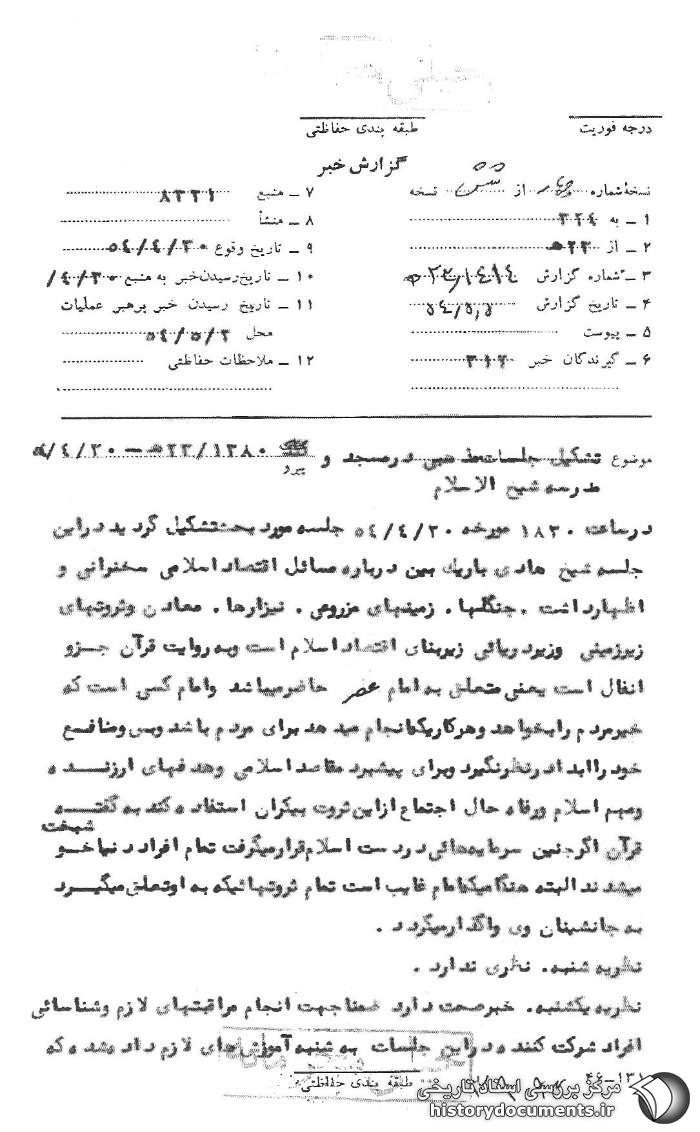 درجه فوریت
طبقه بندی حفاظتی
گزارش خبر
نسخهٔ شماره چهار از شش نسخه
۱ ـ به ۳۲۴
۲ ـ از ۵۲۲
۳ ـ شماره گزارش
۴ ـ تاریخ گزارش ۵۴/۵/۵
۵ ـ پیوست
۶ ـ گیرندگان خبر ۳۱۲
۷ ـ منبع ۸۳۳۱
۸ ـ منشأ
۹ ـ تاریخ وقوع ۵۴/۴/۳۰
۱۰ ـ تاریخ رسیدن خبر به منبع ۴/۳۰/
۱۱ ـ تاریخ رسیدن خبر برهبر عملیات
محل ۵۴/۵/۲
۱۲ ـ ملاحظات حفاظتی
موضوع تشکیل جلسات مذهبی در مسجد و
مدرسه شیخ الاسلام
پیرو ۵۲۲/۱۳۸۰ – ۵۴/۴/۳۰
در ساعت ۱۸۳۰ مورخه ۵۴/۴/۳۰ جلسه مورد بحث تشکیل گردید در این
جلسه شیخ هادی باریک بین درباره مسائل اقتصاد اسلامی سخنرانی و
اظهار داشت . جنگلها . زمینهای مزروعی . نیزارها . معادن و ثروتهای
زیرزمینی وزیردریائی زیربنای اقتصاد اسلام است وبه روایت قرآن جزو
انفال است یعنی متعلق به امام عصر حاضر میباشد وامام کسی است که
خیر مردم را بخواهد وهر کاریکه انجام میدهد برای مردم باشد وبس ومنافع
خود را ابدا در نظر نگیرد وبرای پیشبرد مقاصد اسلامی وهدفهای ارزنده
ومهم اسلام ورفاه حال اجتماع ازاین ثروت بیکران استفاده کند به گفته
قرآن اگر چنین سرمایه هائی در دست اسلام قرار میگرفت تمام افراد دنیا خوشبخت
میشدند البته هنگامیکه امام غایب است تمام ثروتهائیکه به او تعلق میگیرد
به جانشینان وی واگذار میگردد .
نظریه شنبه. نظری ندارد .
نظریه یکشنبه. خبر صحت دارد ضمنا جهت انجام مراقبتهای لازم وشناسائی
افراد شرکت کننده در این جلسات به شنبه آموزش های لازم داده شده که
طبقه بندی حفاظتی
۴۶-۱۳۱
مرکز بررسی اسناد تاریخی
historydocuments.ir